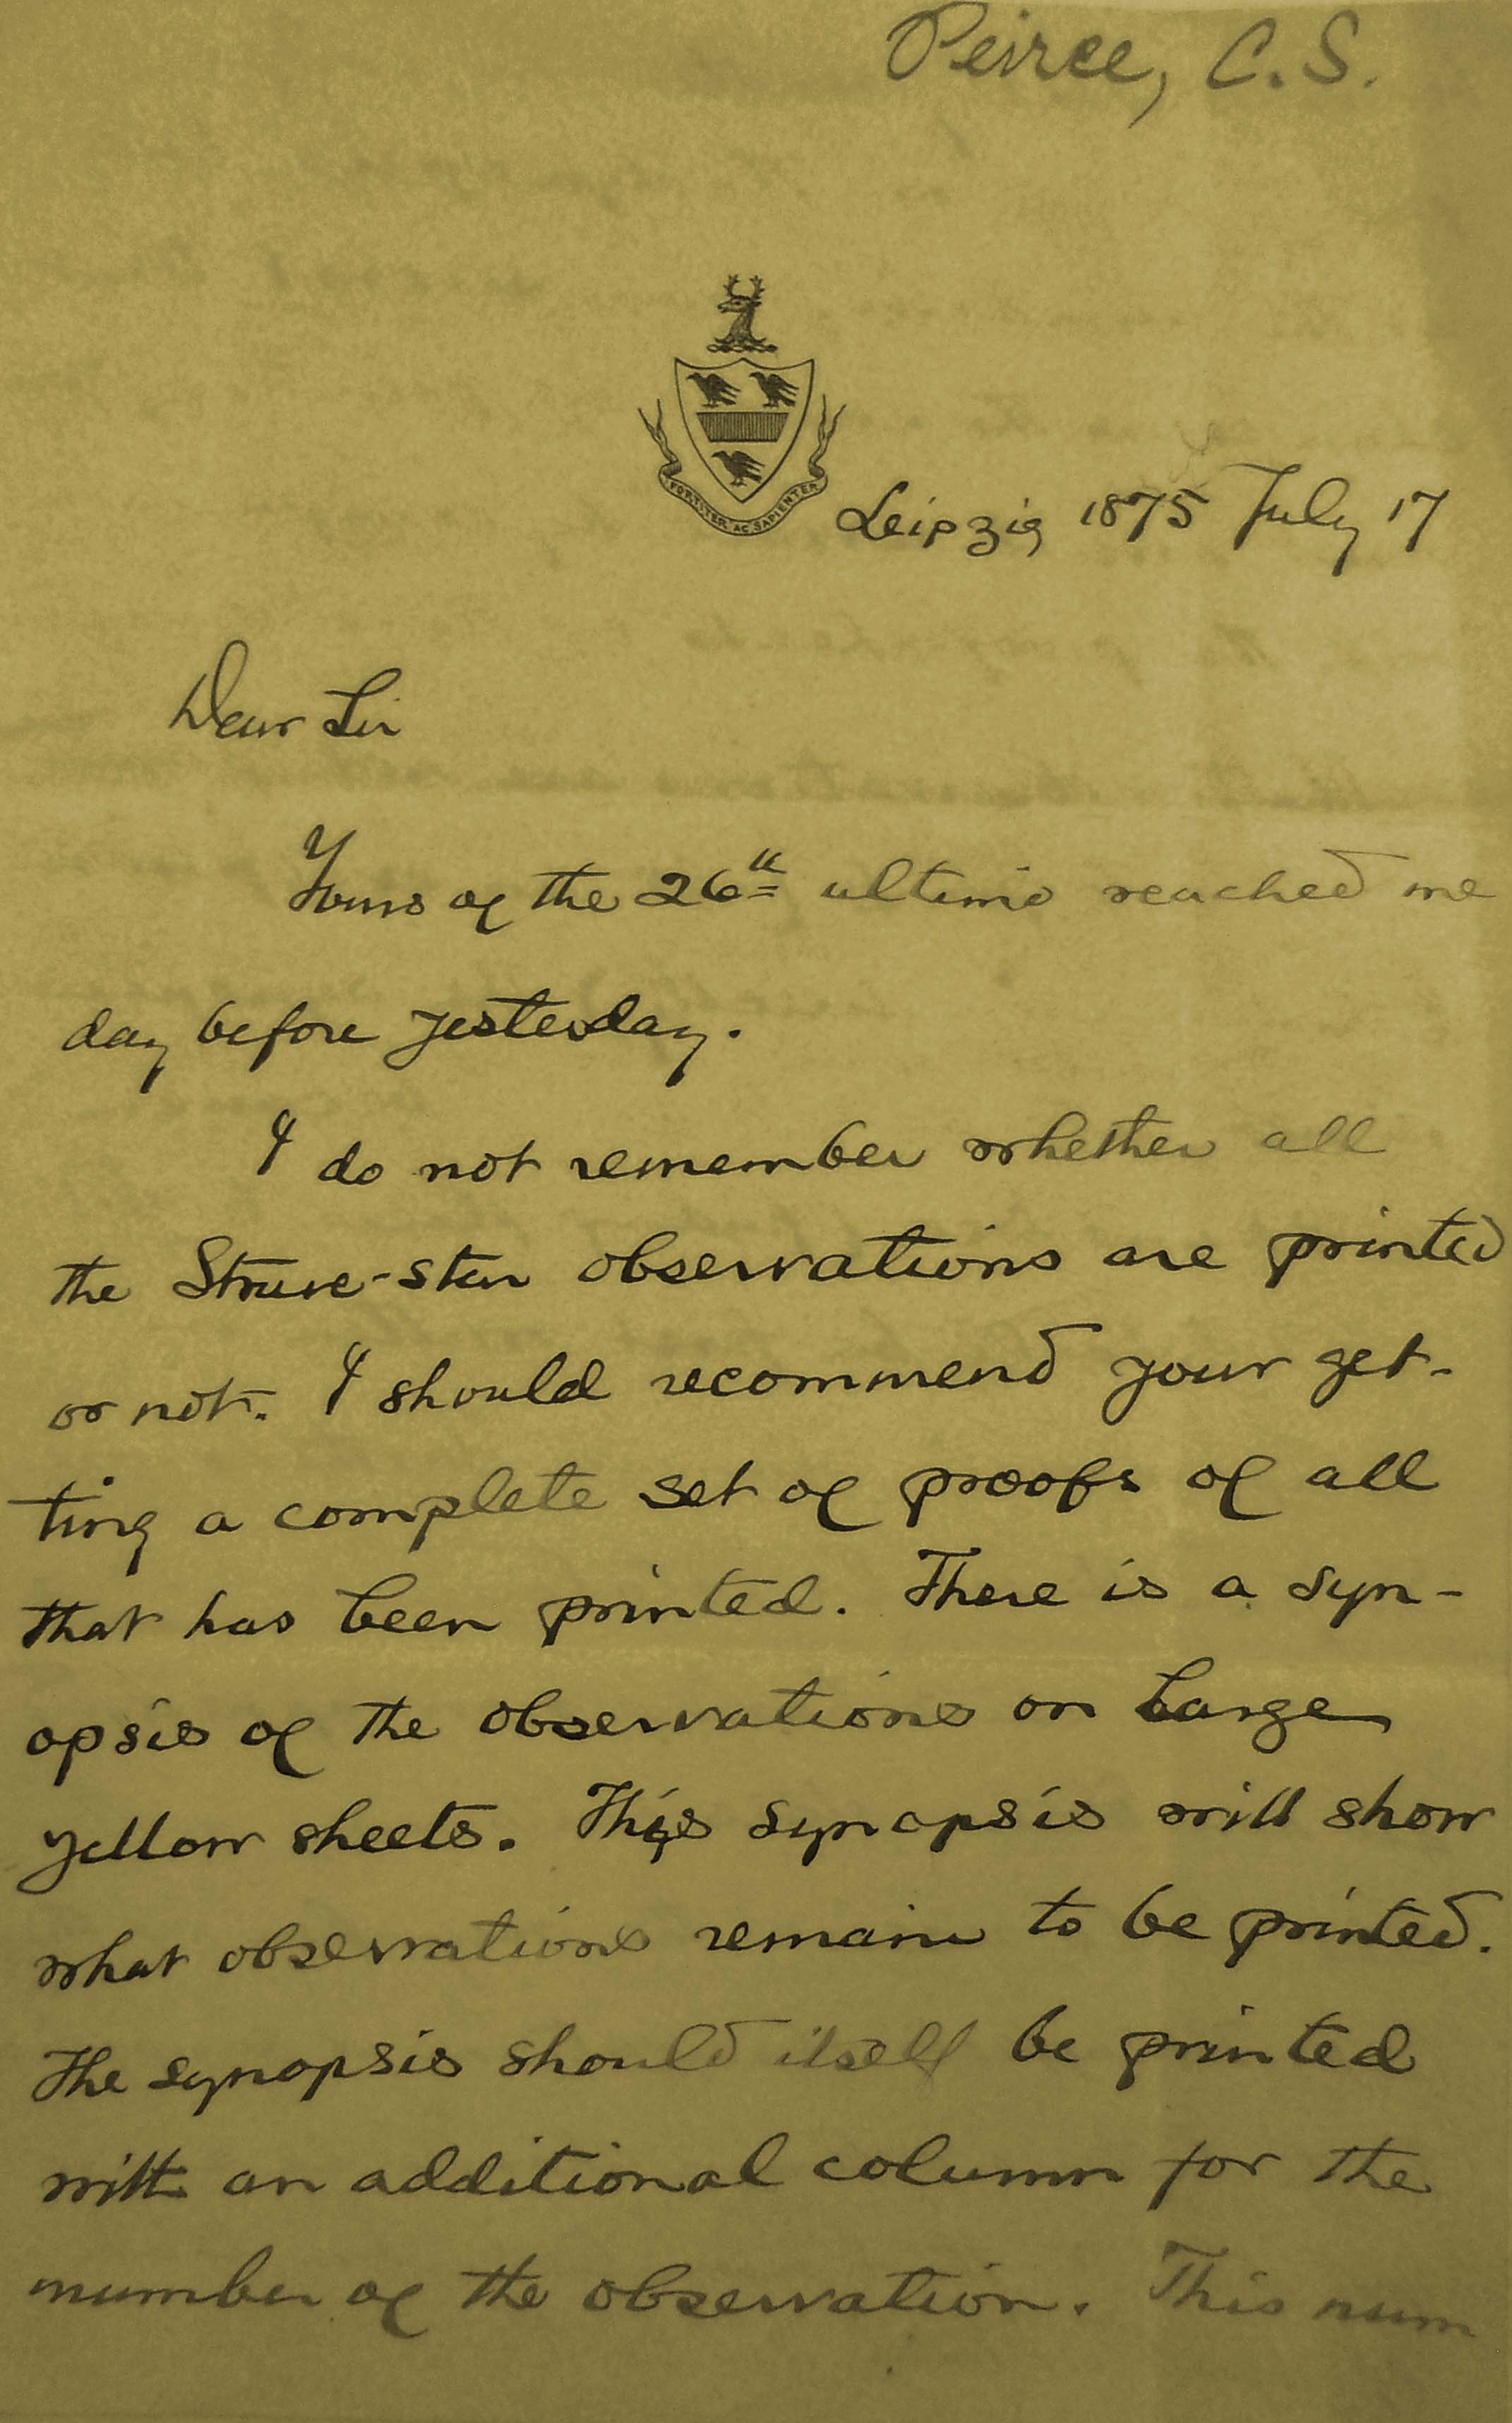 Peirce, C.S.
FORTITER AC SAPIENTER
Leipzig 1875 July 17
Dear Sir
Yours of the 26th ultimo reached me
day before yesterday.
I do not remember whether all
the Struve-star observations are printed
or not. I should recommend your get-
ting a complete set of proofs of all
that has been printed. There is a syn-
opsis of the observations on large
yellow sheets. This synopsis will show
what observations remain to be printed.
The synopsis should itself be printed
with an additional column for the
number of the observation. This num